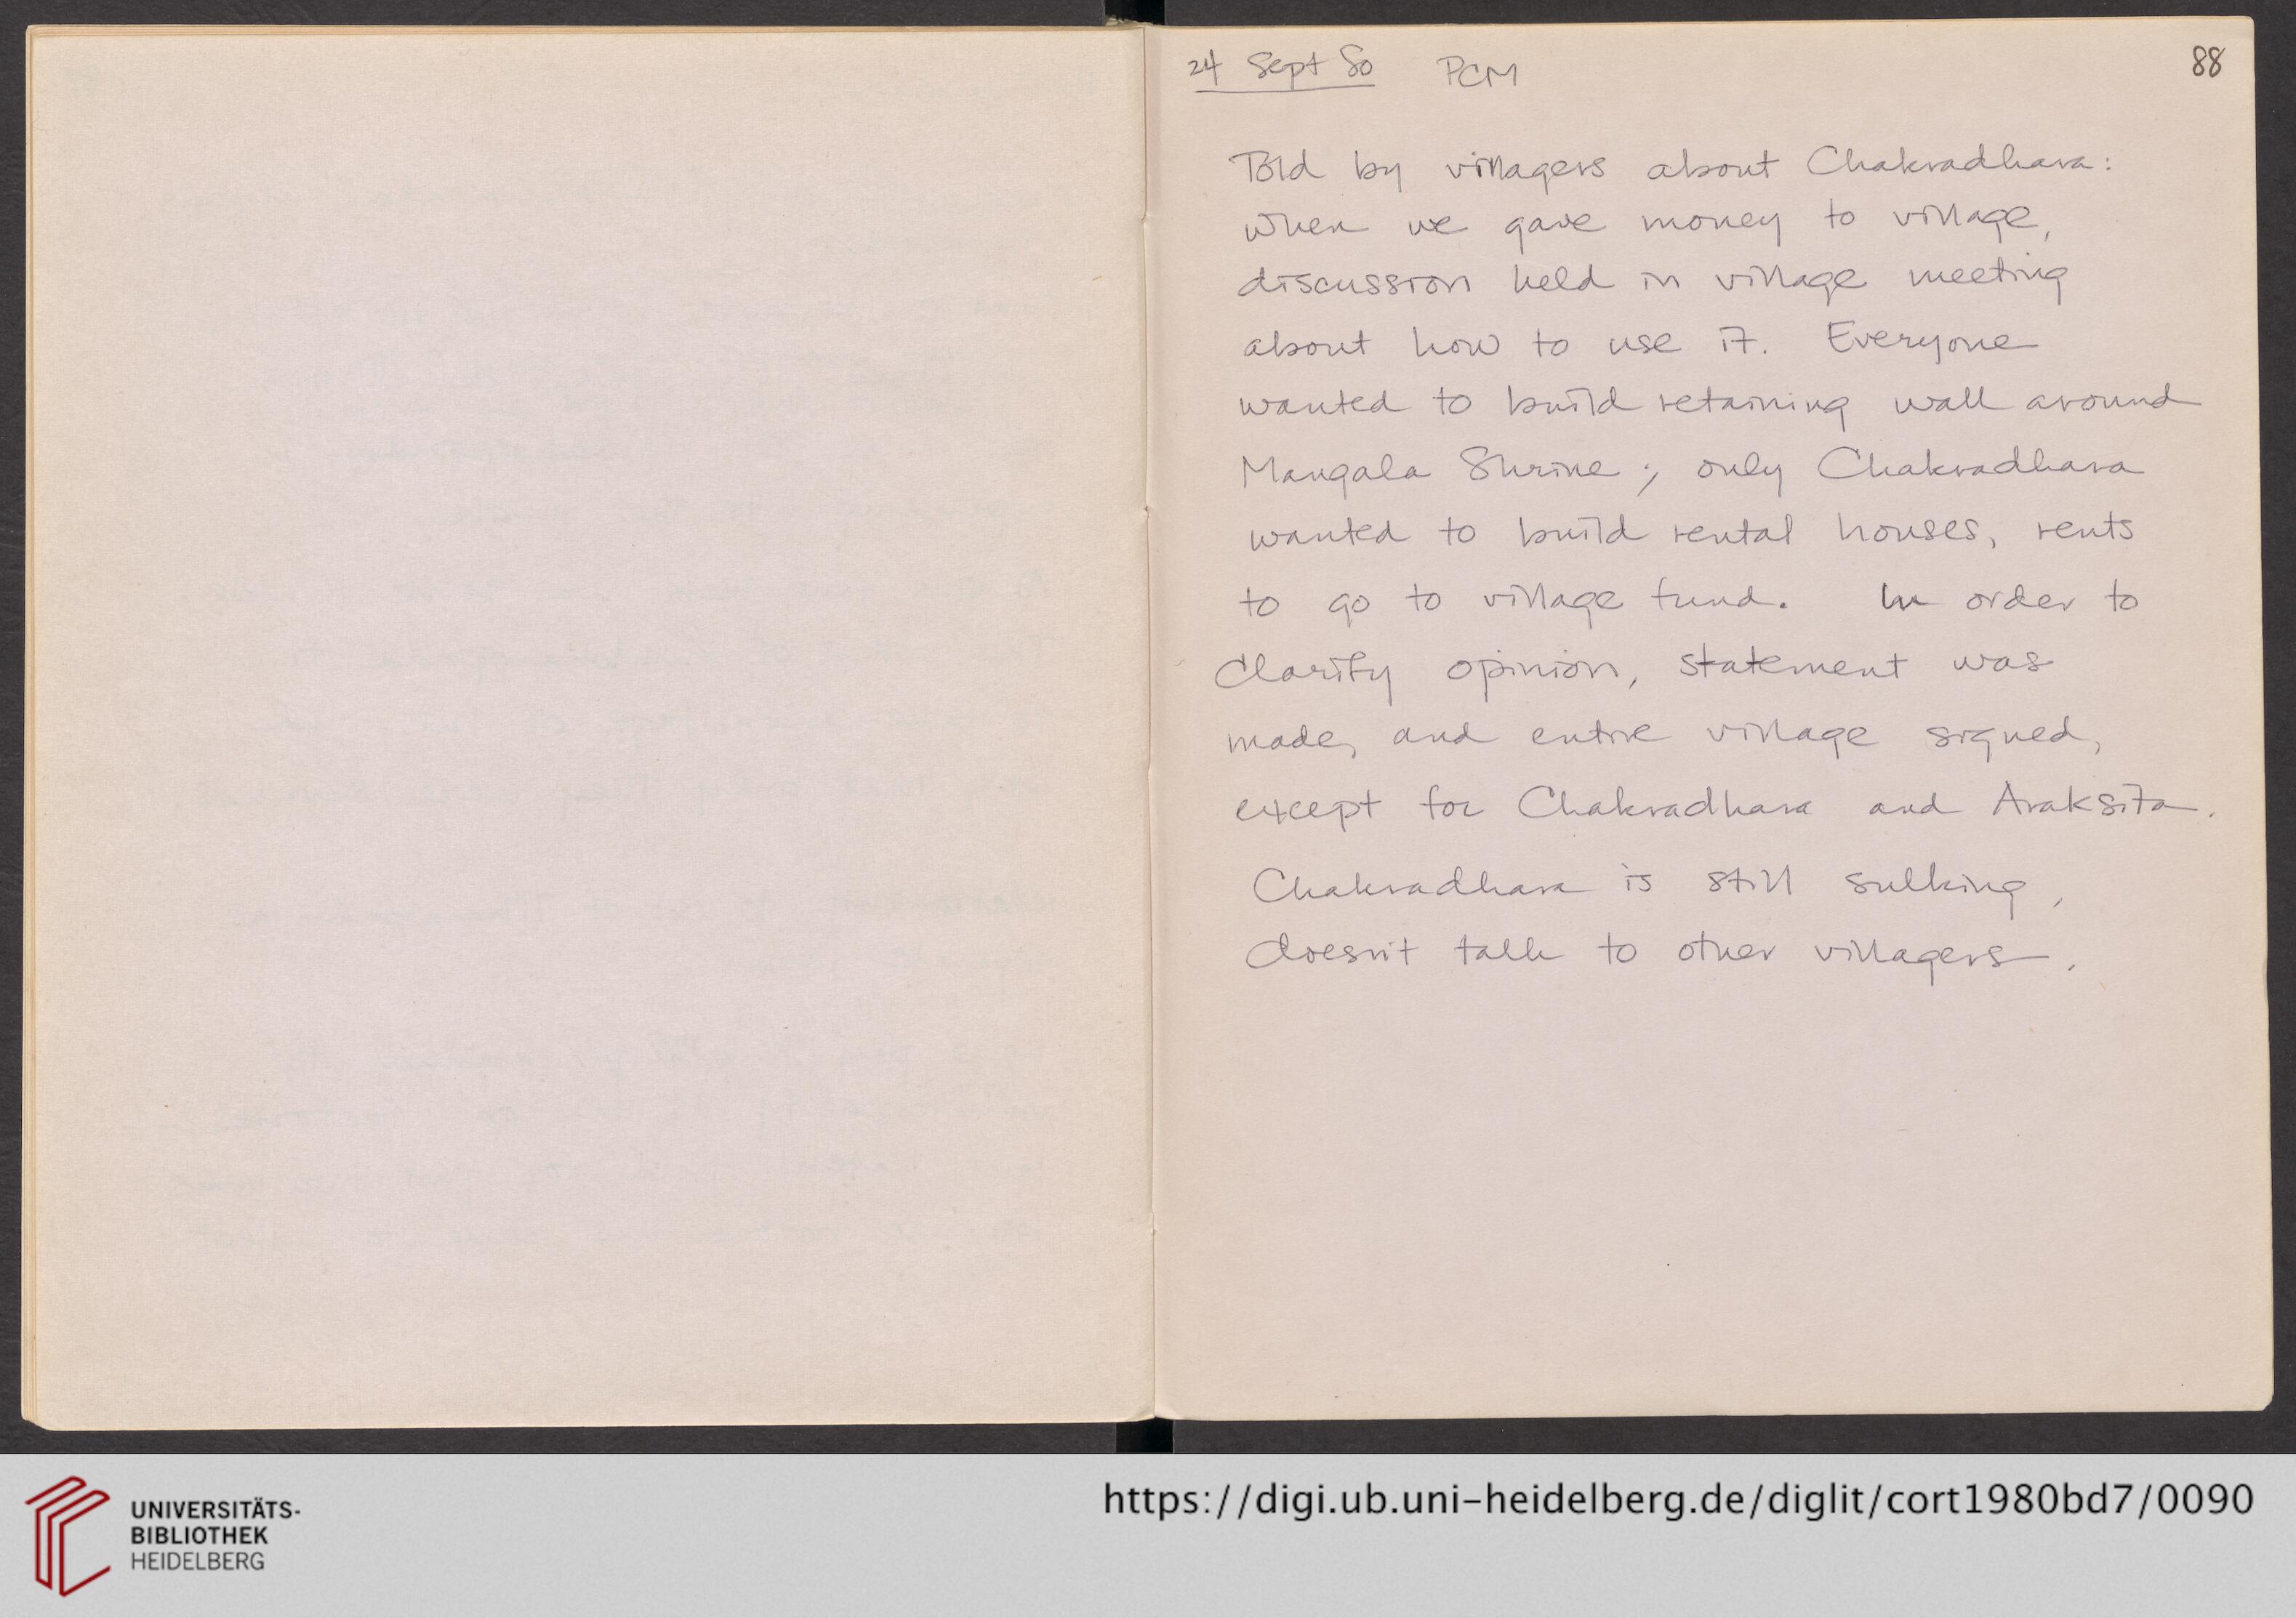 24 Sept 80 PCM 88
Told by villagers about Chakradhara:
When we gave money to village,
discussion held in village meeting
about how to use it. Everyone
wanted to build retaining wall around
Mangala Shrine; only Chakradhara
wanted to build rental houses, rents
to go to village fund. In order to
Clarify opinion, statement was
made, and entire village signed,
except for Chakradhara and Araksita.
Chakradhara is still sulking,
doesn't talk to other villagers.
UNIVERSITÄTS-
BIBLIOTHEK
HEIDELBERG
https://digi.ub.uni-heidelberg.de/diglit/cort1980bd7/0090